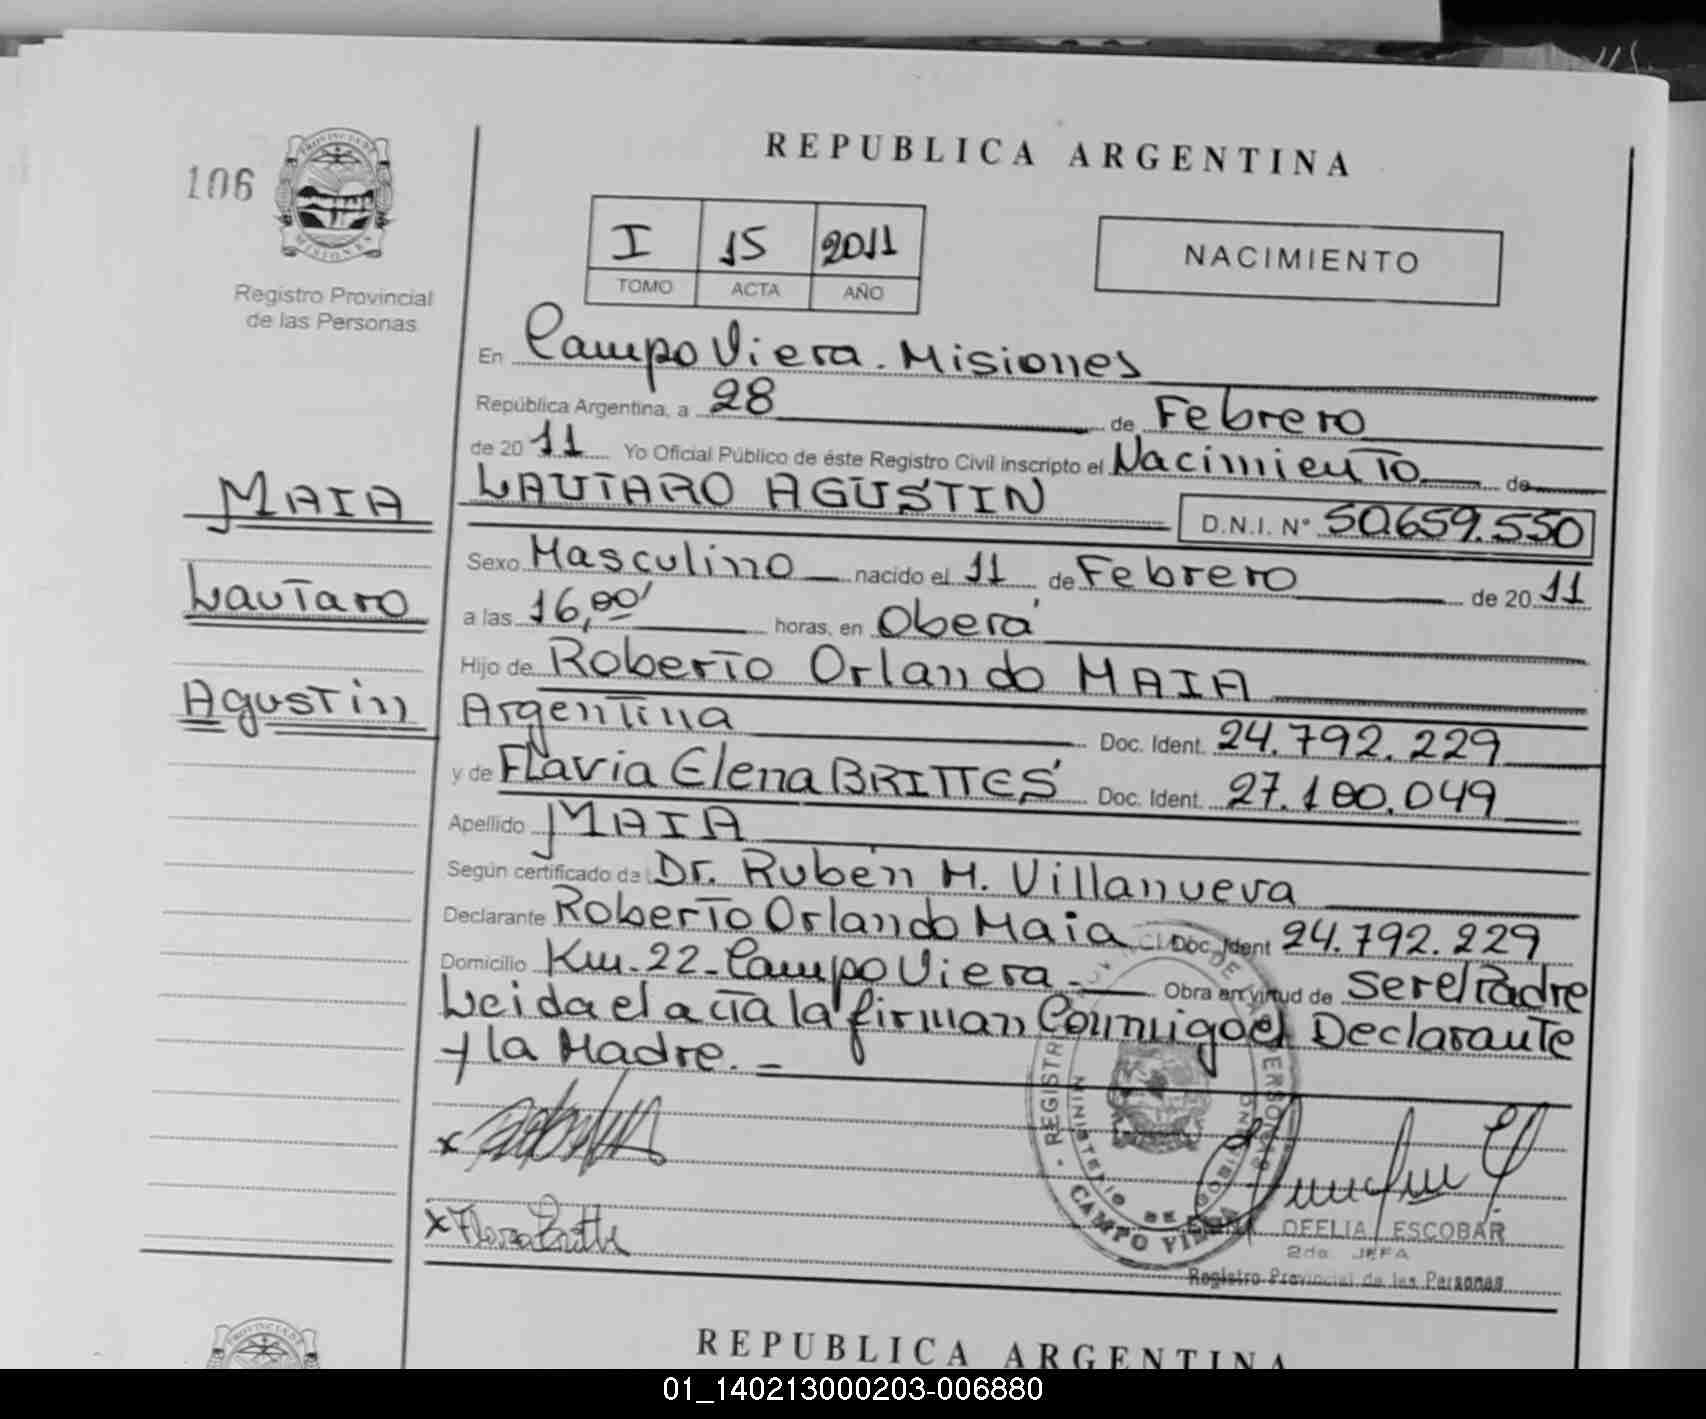 REPUBLICA ARGENTINA
106
PROVINCIA DE
MISIONES
Registro Provincial
de las Personas
I 15 2011
TOMO ACTA AÑO
NACIMIENTO
En Campo Viera. Misiones
República Argentina, a 28 de Febrero
de 20 11 Yo Oficial Público de éste Registro Civil inscripto el Nacimiento de
LAUTARO AGUSTIN D.N.I. Nº 50.659.550
MAIA
Lautaro
Agustin
Sexo Masculino nacido el 11 de Febrero de 20 11
a las 16,00' horas, en Oberá
Hijo de Roberto Orlando MAIA
Argentina Doc. Ident. 24.792.229
y de Flavia Elena BRITTES Doc. Ident. 27.180.049
Apellido MAIA
Según certificado de Dr. Rubén M. Villanueva
Declarante Roberto Orlando Maia Doc. Ident 24.792.229
Domicilio Km. 22 - Campo Viera - Obra en virtud de ser el Padre
Leida el acta la firman Conmigo el Declarante
y la Madre. -
x
x
REGISTRO DE LAS PERSONAS
MINISTERIO DE GOBIERNO
CAMPO VIERA
OFELIA ESCOBAR
2da. JEFA
Registro Provincial de las Personas
REPUBLICA ARGENTINA
01_140213000203-006880